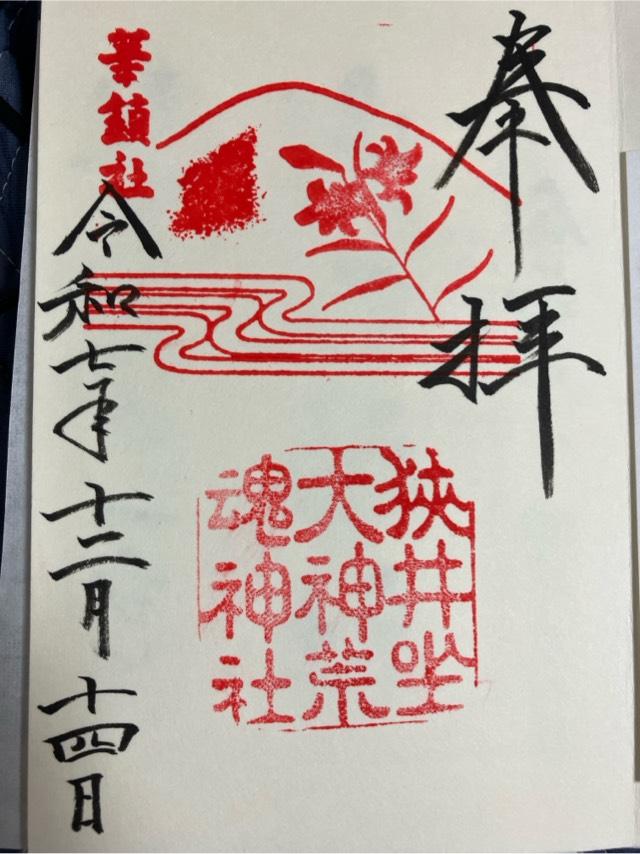 奉拝
華鎮社
狭井坐
大神荒
魂神社
令和七年十二月十四日